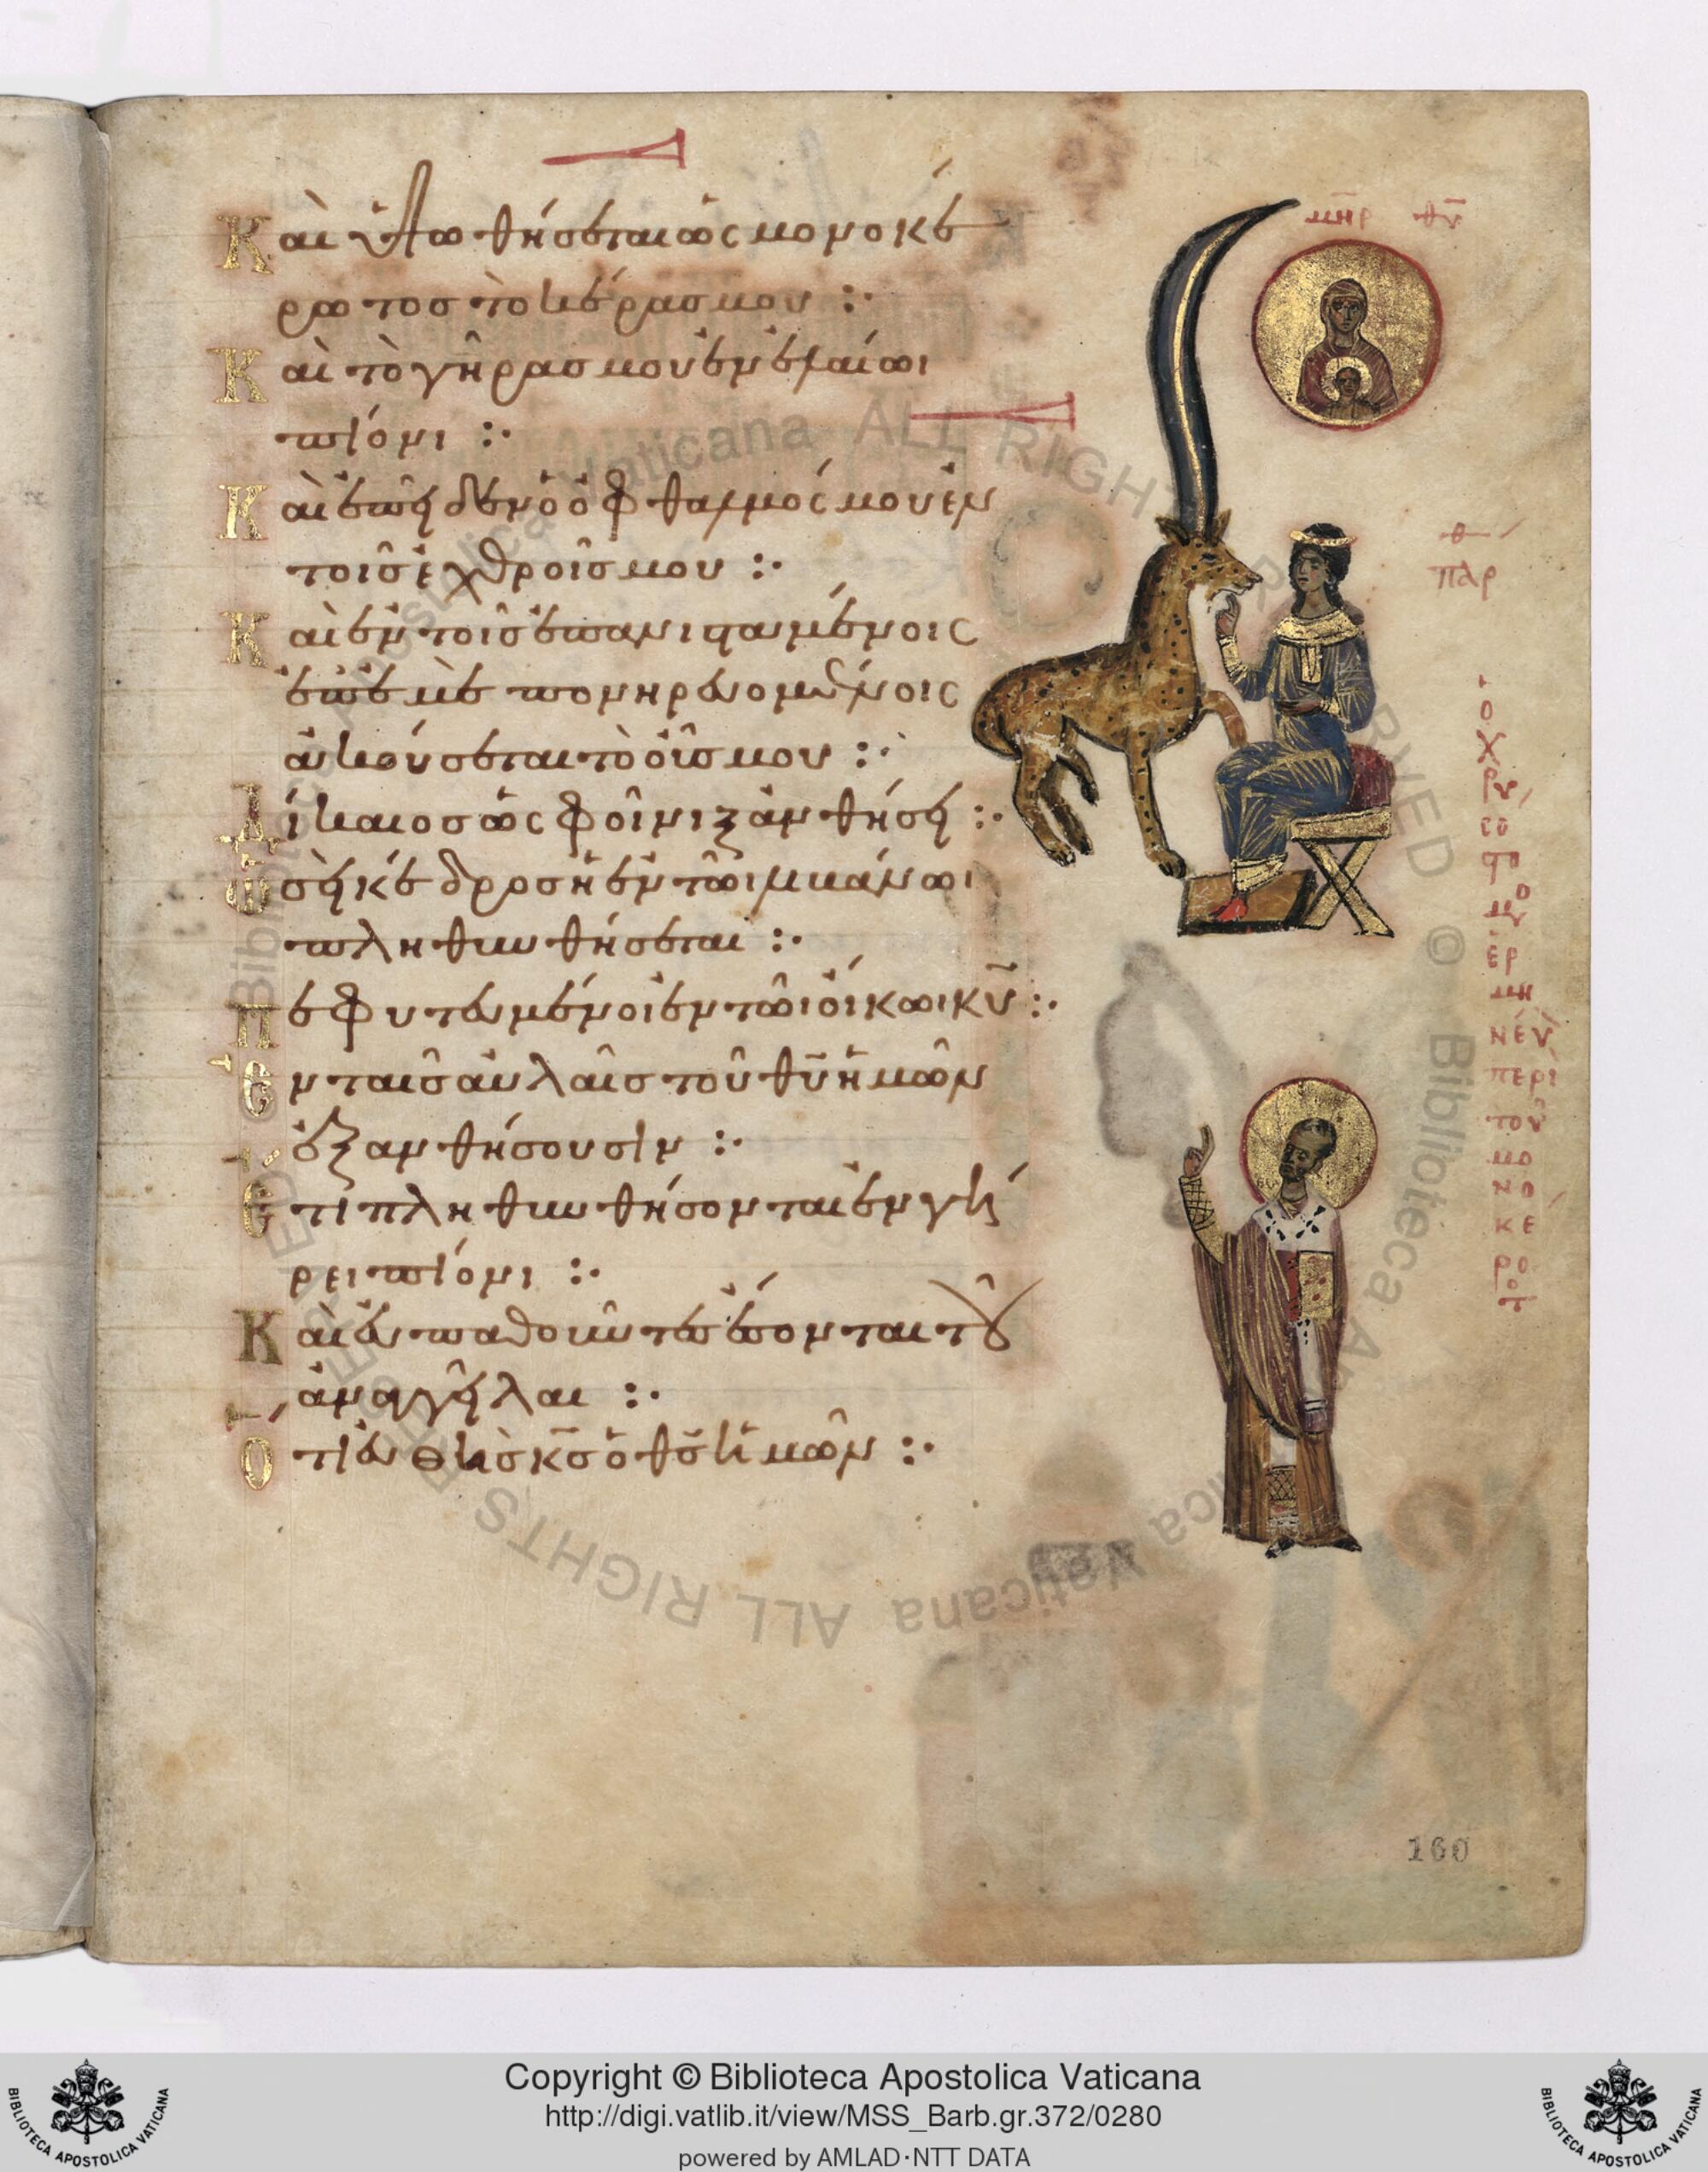 Καὶ ὑψωθήσεται ὡς μονοκέ
ρωτος τὸ κέρας μου :·
Καὶ τὸ γῆρας μου ἐν ἐλαίωι
πίονι :·
Καὶ ἐπῆδεν ὁ ὀφθαλμός μου ἐν
τοῖς ἐχθροῖς μου :·
Καὶ ἐν τοῖς ἐπανισταμένοις
ἐπ' ἐμὲ πονηρευομένοις
ἀκούσεται τὸ οὖς μου :·
Δίκαιος ὡς φοῖνιξ ἀνθήσει :·
Ὡσεὶ κέδρος ἡ ἐν τῶι Λιβάνωι
πληθυνθήσεται :·
Πεφυτευμένοι ἐν τῶι οἴκωι κ̅υ̅ :·
Ἐν ταῖς αὐλαῖς τοῦ θ̅υ̅ ἡμῶν
ἐξανθήσουσιν :·
Ἔτι πληθυνθήσονται ἐν γή
ρει πίονι :·
Καὶ εὐπαθοῦντες ἔσονται τοῦ
ἀναγγεῖλαι :·
Ὅτι εὐθὴς κ̅ς̅ ὁ θ̅ς̅ ἡμῶν :·
μ̅η̅ρ̅ θ̅υ̅
ἡ
παρ
ὁ
χ
ρυ
σό
στο
μο
ἑρ
μη
νεύ
περὶ
τοῦ
μο
νο
κέ
ρο
τ
160
Copyright © Biblioteca Apostolica Vaticana
http://digi.vatlib.it/view/MSS_Barb.gr.372/0280
powered by AMLAD·NTT DATA
BIBLIOTECA APOSTOLICA VATICANA
BIBLIOTECA APOSTOLICA VATICANA